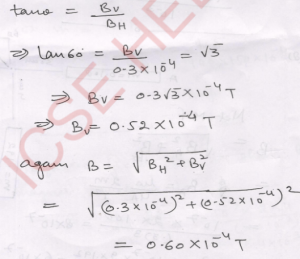 tanθ = Bv/BH
⇒ tan60° = Bv/0.3×10⁻⁴ = √3
⇒ Bv = 0.3√3×10⁻⁴ T
⇒ Bv = 0.52×10⁻⁴ T
again B = √(BH²+Bv²)
= √((0.3×10⁻⁴)²+(0.52×10⁻⁴)²)
= 0.60×10⁻⁴ T
ICSE HEL